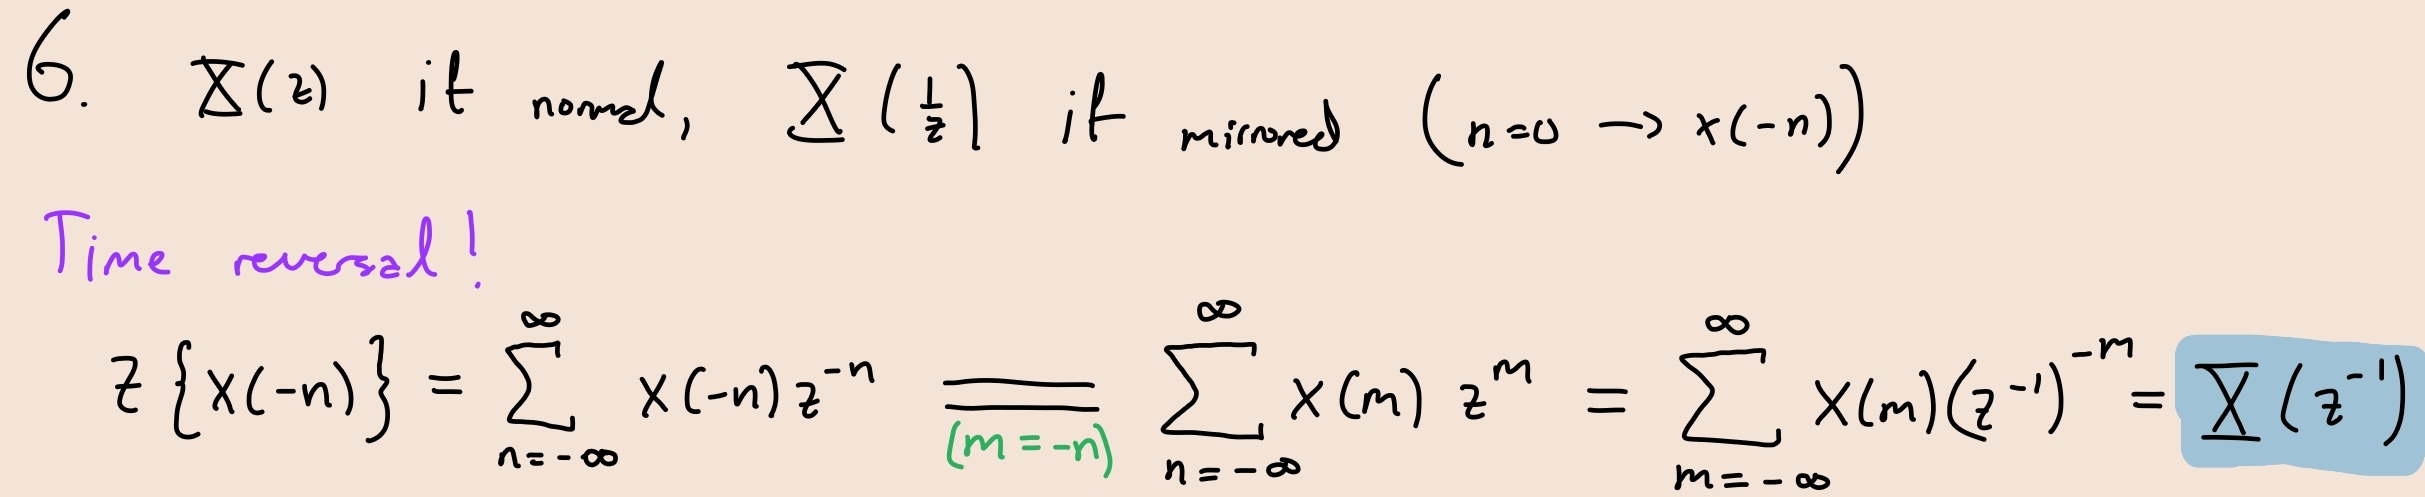 6. X(z) if normal, X(1/z) if mirrored (n=0 → x(-n))
Time reversal!
Z{x(-n)} = ∑_{n=-∞}^{∞} x(-n) z^{-n} = (m=-n) ∑_{n=-∞}^{∞} x(m) z^{m} = ∑_{m=-∞}^{∞} x(m)(z^{-1})^{-m} = X(z^{-1})